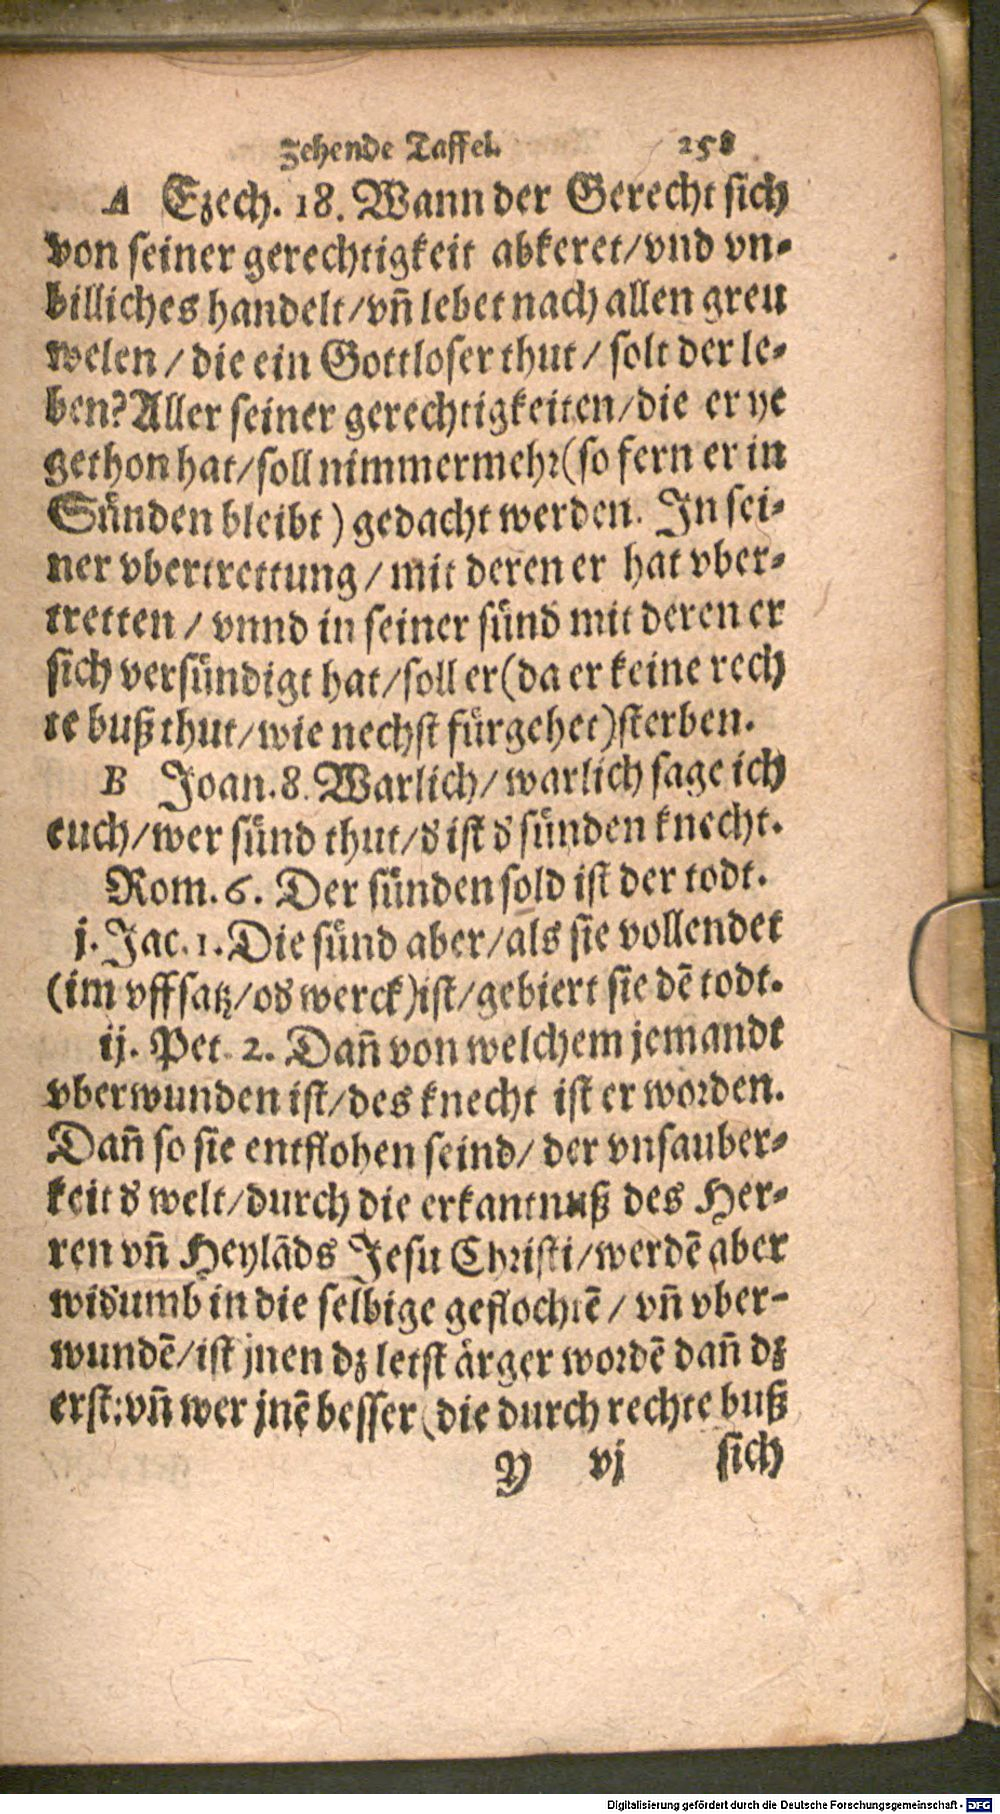 zehende Taffel. 258
A Ezech. 18. Wann der Gerecht sich
von seiner gerechtigkeit abkeret/vnd vn-
billiches handelt/vn̄ lebet nach allen greu
welen/die ein Gottloser thut/solt der le-
ben? Aller seiner gerechtigkeiten/die er ye
gethon hat/soll nimmermehr(so fern er in
Sünden bleibt) gedacht werden. In sei-
ner vbertrettung/mit deren er hat vber-
tretten/vnnd in seiner sünd mit deren er
sich versündigt hat/soll er(da er keine rech
te buß thut/wie nechst fürgehet)sterben.
B Joan. 8. Warlich/warlich sage ich
euch/wer sünd thut/d ist d sünden knecht.
Rom. 6. Der sünden sold ist der todt.
j. Jac. 1. Die sünd aber/als sie vollendet
(im vffsatz/od werck)ist/gebiert sie dē todt.
ij. Pet. 2. Dan̄ von welchem jemandt
vberwunden ist/des knecht ist er worden.
Dan̄ so sie entflohen seind/der vnsauber-
keit d welt/durch die erkantnuß des Her-
ren vn̄ Heylāds Jesu Christi/werdē aber
widumb in die selbige geflochtē/vn̄ vber-
wundē/ist jnen dz letst ärger wordē dan̄ dz
erst:vn̄ wer jnē besser(die durch rechte buß
Y vj sich
Digitalisierung gefördert durch die Deutsche Forschungsgemeinschaft - DFG